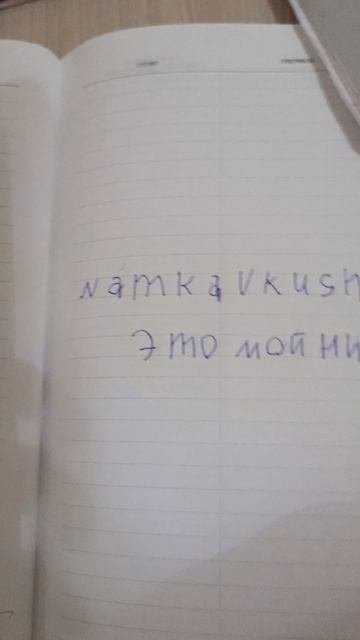 Namkavkush
Это мой ни